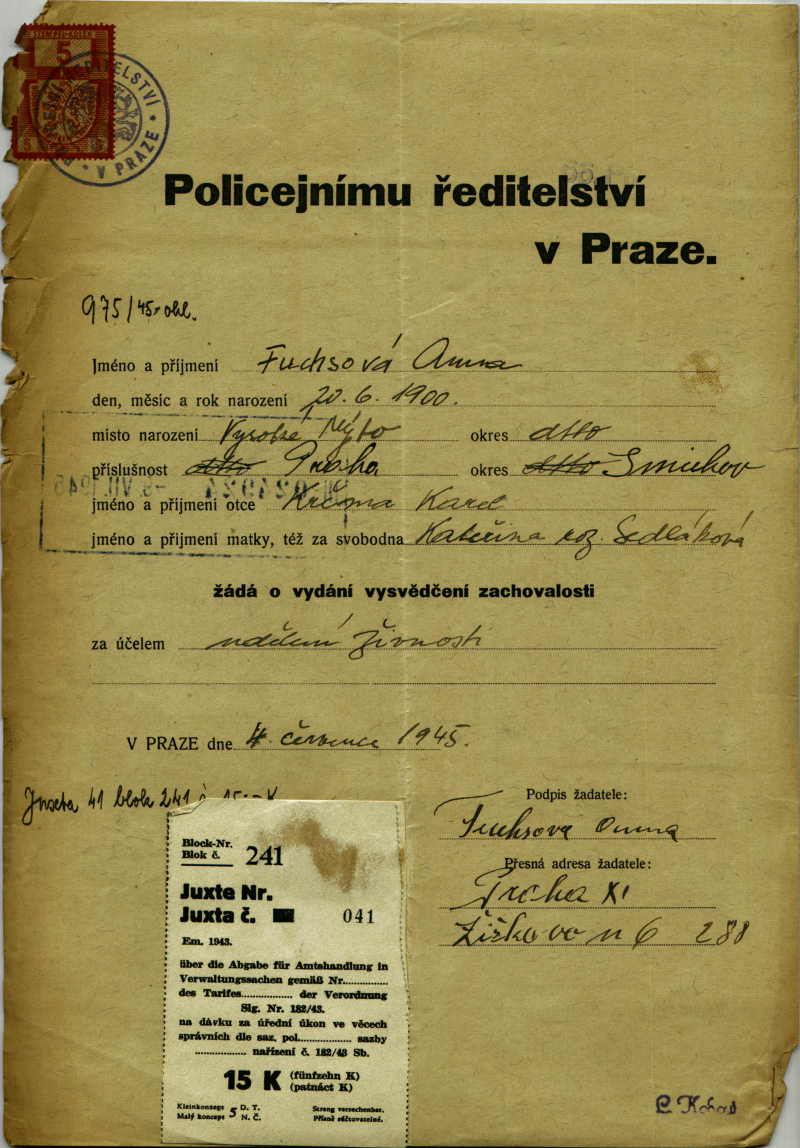 STEMPEL-KOLEK
5
ŘEDITELSTVÍ
V PRAZE
Policejnímu ředitelství
v Praze.
975/45-ohl.
Jméno a příjmení Fuchsová Anna
den, měsíc a rok narození 20. 6. 1900.
místo narození Vysoké Mýto okres dtto
příslušnost dtto Praha okres dtto Smíchov
jméno a příjmení otce Krčma Karel
jméno a přijmení matky, též za svobodna Kateřina roz. Sedláková
žádá o vydání vysvědčení zachovalosti
za účelem udělení živnosti
V PRAZE dne 4. července 1945.
Juxta 41 blok 241 15.- K
Podpis žadatele:
Fuchsová Anna
Přesná adresa žadatele:
Praha XI
Žižkovo n 6 288
Block-Nr.
Blok č. 241
Juxte Nr.
Juxta č. 041
Em. 1943.
über die Abgabe für Amtshandlung in
Verwaltungssachen gemäß Nr...............
des Tarifes................. der Verordnung
Slg. Nr. 182/43.
na dávku za úřední úkon ve věcech
správních dle saz. pol.................. sazby
................. nařízení č. 182/43 Sb.
15 K (fünfzehn K)
(patnáct K)
Kleinkonzept 5 D. T.
Malý koncept N. Č.
Streng verrechenbar.
Přísně zúčtovatelné.